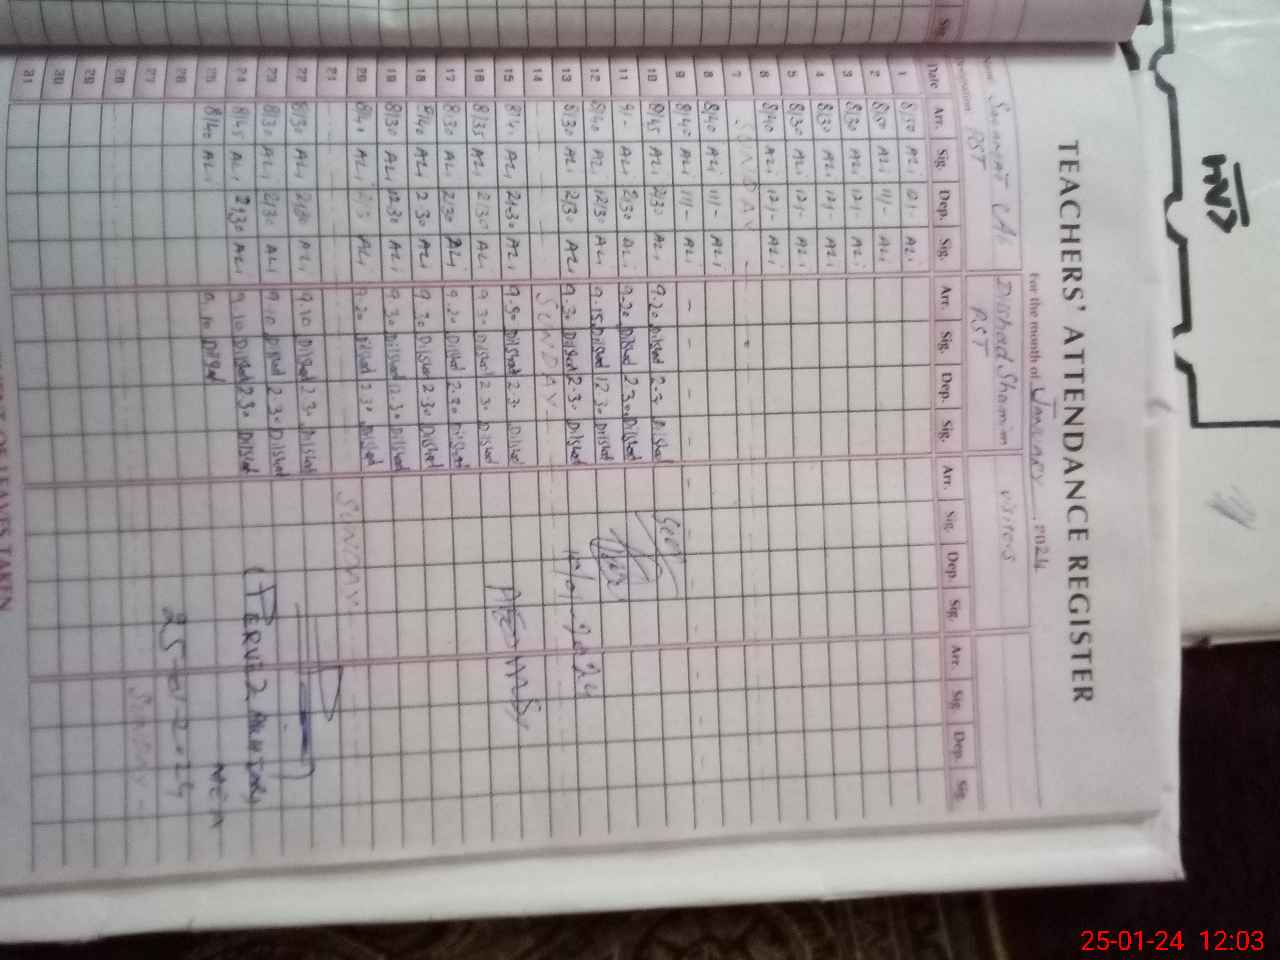 TEACHERS' ATTENDANCE REGISTER
For the month of January 2024
Dilshad Shamim visitors
RST RST
Date Arr. Sig. Dep. Sig. Arr. Sig. Dep. Sig. Arr. Sig. Dep. Sig. Arr. Sig. Dep. Sig.
1 8/50 ALi 12/- ALi
2 8/50 ALi 11/- ALi
3 8/30 ALi 12/- ALi
4 8/30 ALi 12/- ALi
5 8/30 ALi 12/- ALi
6 8/40 ALi 12/- ALi
7 SUNDAY
8 8/40 ALi 11/- ALi
9 8/40 ALi 11/- ALi -
10 8/45 ALi 2/30 ALi 9.20 Dilshad Dilshad
11 9/- ALi 2/30 ALi 9.30 Dilshad 2.30 Dilshad
12 8/40 ALi 12/30 ALi 9.15 Dilshad 12.30 Dilshad
13 8/30 ALi 2/30 ALi 9.30 Dilshad 2.30 Dilshad
14 SUNDAY
15 8/40 ALi 2/30 ALi 9.30 Dilshad 2.30 Dilshad
16 8/35 ALi 2/30 ALi 9.30 Dilshad 2.30 Dilshad
17 8/30 ALi 2/30 ALi 9.20 Dilshad 2.30 Dilshad
18 8/40 ALi 2.30 ALi 9.30 Dilshad 2.30 Dilshad
19 8/30 ALi 12.30 ALi 9.30 Dilshad 12.30 Dilshad
20 ALi ALi 9.20 Dilshad 2.30 Dilshad
21 SUNDAY
22 8/30 ALi 2/30 ALi 9.10 Dilshad 2.30 Dilshad
23 8/30 ALi 2/30 ALi 9.10 Dilshad 2.30 Dilshad
24 8/45 ALi 2/30 ALi 9.10 Dilshad 2.30 Dilshad
25 8/40 ALi 9.10 Dilshad
26
27
28 SUNDAY
29
30
31
2024
PERVEZ
25-01-2024
OF LEAVES TAKEN
25-01-24 12:03